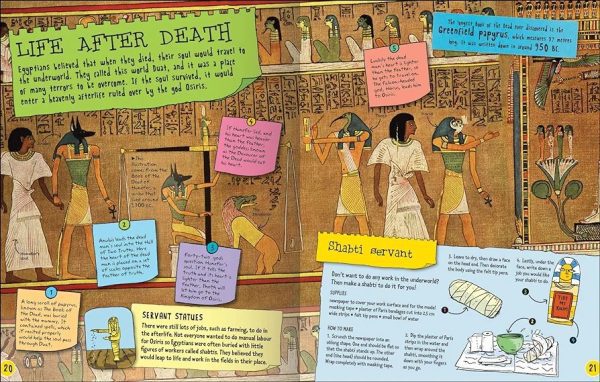 LIFE AFTER DEATH
Egyptians believed that when they died, their soul would travel to
the underworld. They called this world Duat, and it was a place
of many terrors to be overcome. If the soul survived, it would
enter a heavenly afterlife ruled over by the god Osiris.
The longest Book of the Dead ever discovered is the
Greenfield papyrus, which measures 37 metres
long. It was written down in around 950 BC.
5
Luckily the dead
man's heart is lighter
than the feather, so
he gets to travel on.
The falcon-headed
god, Horus, leads him
to Osiris.
4
If Hunefer lied, and
his heart was heavier
than the feather,
the goddess known
as the Devourer of
the Dead would eat
his heart!
This
illustration
comes from the
Book of the
Dead of
Hunefer, a
scribe that
lived around
1,300 BC.
2
Anubis leads the dead
man's soul into the Hall
of Two Truths. Here
the heart of the dead
man is placed on a set
of scales opposite the
feather of truth.
3
Forty-two gods
question Hunefer's
soul. If it tells the
truth and its heart is
lighter than the
feather, Thoth will
let him go to the
Kingdom of Osiris.
1
A long scroll of papyrus,
known as The Book of
the Dead, was buried
with the mummy. It
contained spells, which
if recited properly
would help the soul pass
through Duat.
SERVANT STATUES
There were still lots of jobs, such as farming, to do in
the afterlife. Not everyone wanted to do manual labour
for Osiris so Egyptians were often buried with little
figures of workers called shabtis. They believed they
would leap to life and work in the fields in their place.
Shabti servant
Don't want to do any work in the underworld?
Then make a shabti to do it for you!
SUPPLIES
newspaper to cover your work surface and for the model
masking tape • plaster of Paris bandages cut into 2.5 cm
wide strips • felt tip pens • small bowl of water
HOW TO MAKE
1. Scrunch the newspaper into an
oblong shape. One end should be flat so
that the shabti stands up. The other
end (the head) should be rounded.
Wrap completely with masking tape.
2. Dip the plaster of Paris
strips in the water and
then wrap around the
shabti, smoothing it
down with your fingers
as you go.
3. Leave to dry, then draw a face
on the head end. Then decorate
the body using the felt tip pens.
4. Lastly, under the
face, write down a
job you would like
your shabti to do!
TIDY
MY
ROOM
20
21